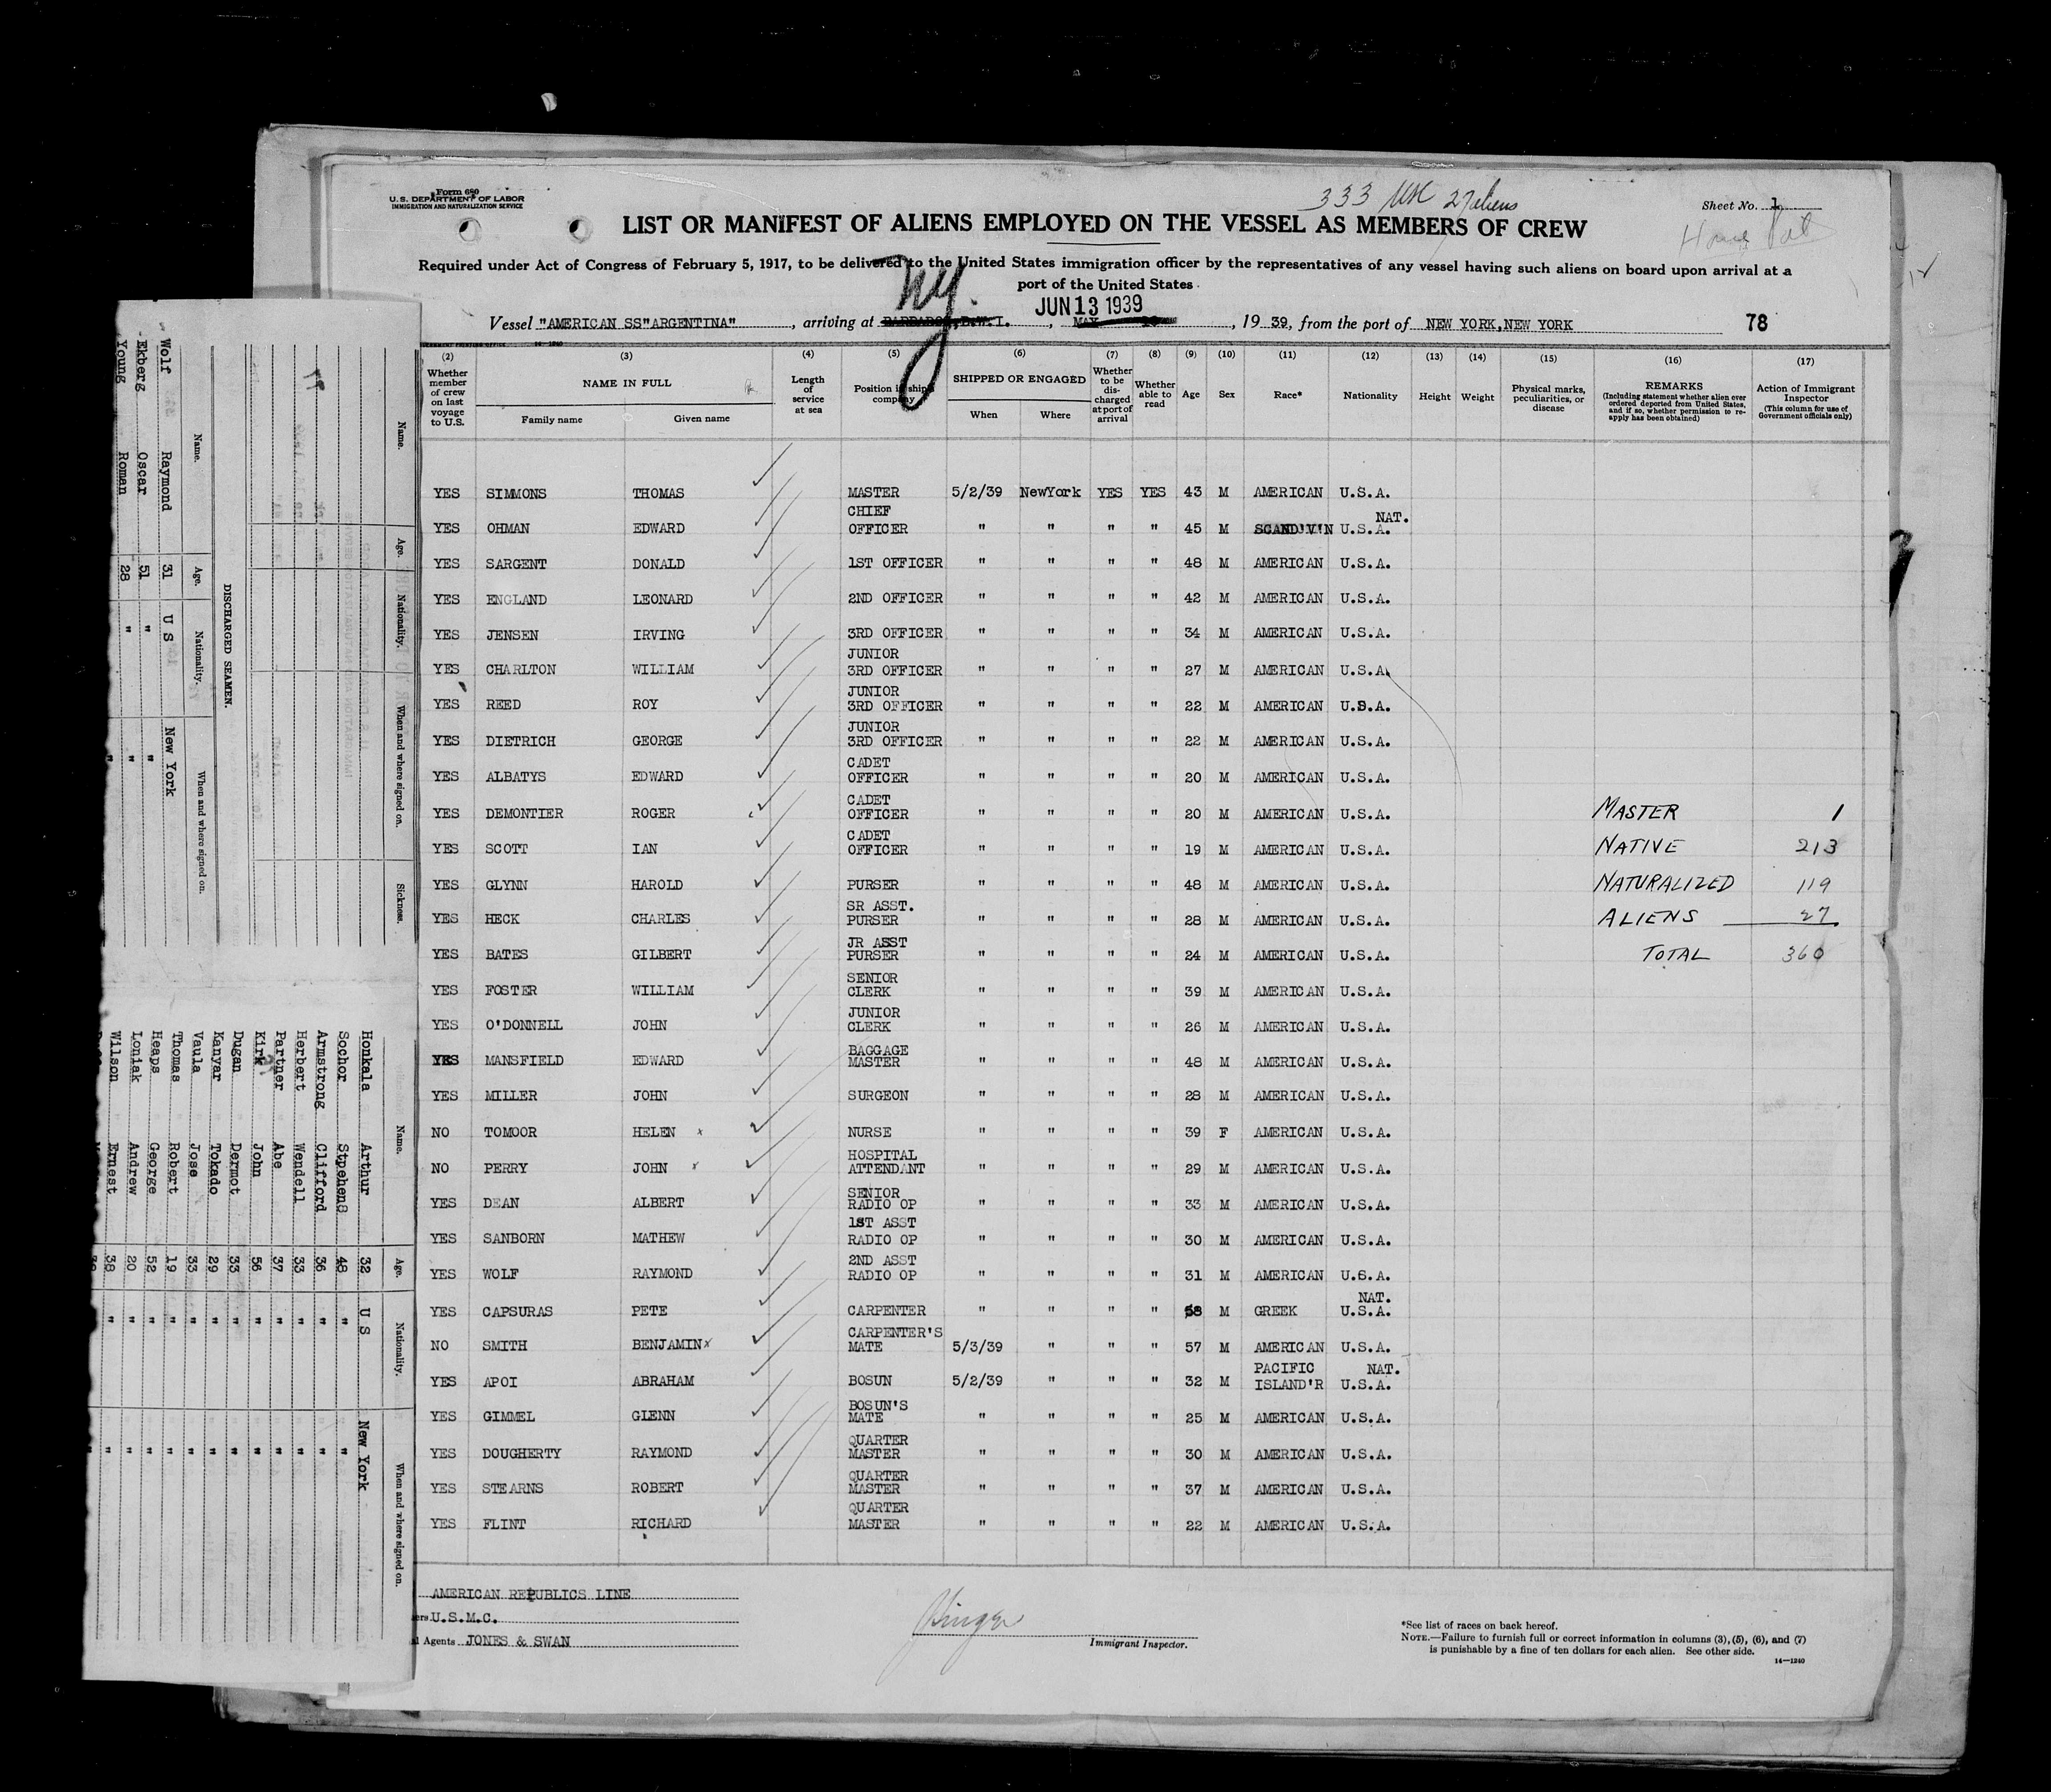 Form 680
U.S. DEPARTMENT OF LABOR
IMMIGRATION AND NATURALIZATION SERVICE
333 27 aliens
Sheet No. 1
LIST OR MANIFEST OF ALIENS EMPLOYED ON THE VESSEL AS MEMBERS OF CREW
Required under Act of Congress of February 5, 1917, to be delivered to the United States immigration officer by the representatives of any vessel having such aliens on board upon arrival at a
port of the United States
NY.
JUN 13 1939
Vessel "AMERICAN SS"ARGENTINA" , arriving at BARBADOS,B.W.I. , MAY , 19 39, from the port of NEW YORK,NEW YORK 78
(2) (3) (4) (5) (6) (7) (8) (9) (10) (11) (12) (13) (14) (15) (16) (17)
Whether member of crew on last voyage to U.S.
NAME IN FULL
Family name Given name
Length of service at sea
Position in ship's company
SHIPPED OR ENGAGED
When Where
Whether to be discharged at port of arrival
Whether able to read
Age
Sex
Race*
Nationality
Height
Weight
Physical marks, peculiarities, or disease
REMARKS
(Including statement whether alien ever ordered deported from United States, and if so, whether permission to reapply has been obtained)
Action of Immigrant Inspector
(This column for use of Government officials only)
YES SIMMONS THOMAS MASTER 5/2/39 NewYork YES YES 43 M AMERICAN U.S.A.
YES OHMAN EDWARD CHIEF OFFICER " " " " 45 M SCAND'V'N U.S.A. NAT.
YES SARGENT DONALD 1ST OFFICER " " " " 48 M AMERICAN U.S.A.
YES ENGLAND LEONARD 2ND OFFICER " " " " 42 M AMERICAN U.S.A.
YES JENSEN IRVING 3RD OFFICER " " " " 34 M AMERICAN U.S.A.
YES CHARLTON WILLIAM JUNIOR 3RD OFFICER " " " " 27 M AMERICAN U.S.A.
YES REED ROY JUNIOR 3RD OFFICER " " " " 22 M AMERICAN U.S.A.
YES DIETRICH GEORGE JUNIOR 3RD OFFICER " " " " 22 M AMERICAN U.S.A.
YES ALBATYS EDWARD CADET OFFICER " " " " 20 M AMERICAN U.S.A.
YES DEMONTIER ROGER CADET OFFICER " " " " 20 M AMERICAN U.S.A. MASTER 1
YES SCOTT IAN CADET OFFICER " " " " 19 M AMERICAN U.S.A. NATIVE 213
YES GLYNN HAROLD PURSER " " " " 48 M AMERICAN U.S.A. NATURALIZED 119
YES HECK CHARLES SR ASST. PURSER " " " " 28 M AMERICAN U.S.A. ALIENS 27
YES BATES GILBERT JR ASST PURSER " " " " 24 M AMERICAN U.S.A. TOTAL 360
YES FOSTER WILLIAM SENIOR CLERK " " " " 39 M AMERICAN U.S.A.
YES O'DONNELL JOHN JUNIOR CLERK " " " " 26 M AMERICAN U.S.A.
YES MANSFIELD EDWARD BAGGAGE MASTER " " " " 48 M AMERICAN U.S.A.
YES MILLER JOHN SURGEON " " " " 28 M AMERICAN U.S.A.
NO TOMOOR HELEN x NURSE " " " " 39 F AMERICAN U.S.A.
NO PERRY JOHN x HOSPITAL ATTENDANT " " " " 29 M AMERICAN U.S.A.
YES DEAN ALBERT SENIOR RADIO OP " " " " 33 M AMERICAN U.S.A.
YES SANBORN MATHEW 1ST ASST RADIO OP " " " " 30 M AMERICAN U.S.A.
YES WOLF RAYMOND 2ND ASST RADIO OP " " " " 31 M AMERICAN U.S.A.
YES CAPSURAS PETE CARPENTER " " " " 58 M GREEK NAT. U.S.A.
NO SMITH BENJAMIN x CARPENTER'S MATE 5/3/39 " " " 57 M AMERICAN U.S.A.
YES APOI ABRAHAM BOSUN 5/2/39 " " " 32 M PACIFIC ISLAND'R NAT. U.S.A.
YES GIMMEL GLENN BOSUN'S MATE " " " " 25 M AMERICAN U.S.A.
YES DOUGHERTY RAYMOND QUARTER MASTER " " " " 30 M AMERICAN U.S.A.
YES STEARNS ROBERT QUARTER MASTER " " " " 37 M AMERICAN U.S.A.
YES FLINT RICHARD QUARTER MASTER " " " " 22 M AMERICAN U.S.A.
AMERICAN REPUBLICS LINE
U.S.M.C.
Agents JONES & SWAN
Immigrant Inspector.
*See list of races on back hereof.
NOTE.—Failure to furnish full or correct information in columns (3), (5), (6), and (7)
is punishable by a fine of ten dollars for each alien. See other side.
14—1240
Name. Age. Nationality. When and where signed on. Sickness.
DISCHARGED SEAMEN.
Name. Age. Nationality. When and where signed on.
Wolf Raymond 31 U S New York
Ekberg Oscar 51 " "
Young Roman 28 " "
Name. Age. Nationality. When and where signed on.
Honkala Arthur 32 U S New York
Sochor Stpehens 48 " "
Armstrong Clifford 36 " "
Herbert Wendell 33 " "
Partner Abe 37 " "
Kirk John 56 " "
Dugan Dermot 33 " "
Kanyar Tokado 29 " "
Vaula Jose 33 " "
Thomas Robert 19 " "
Heaps George 52 " "
Loniak Andrew 20 " "
Wilson Ernest 38 " "